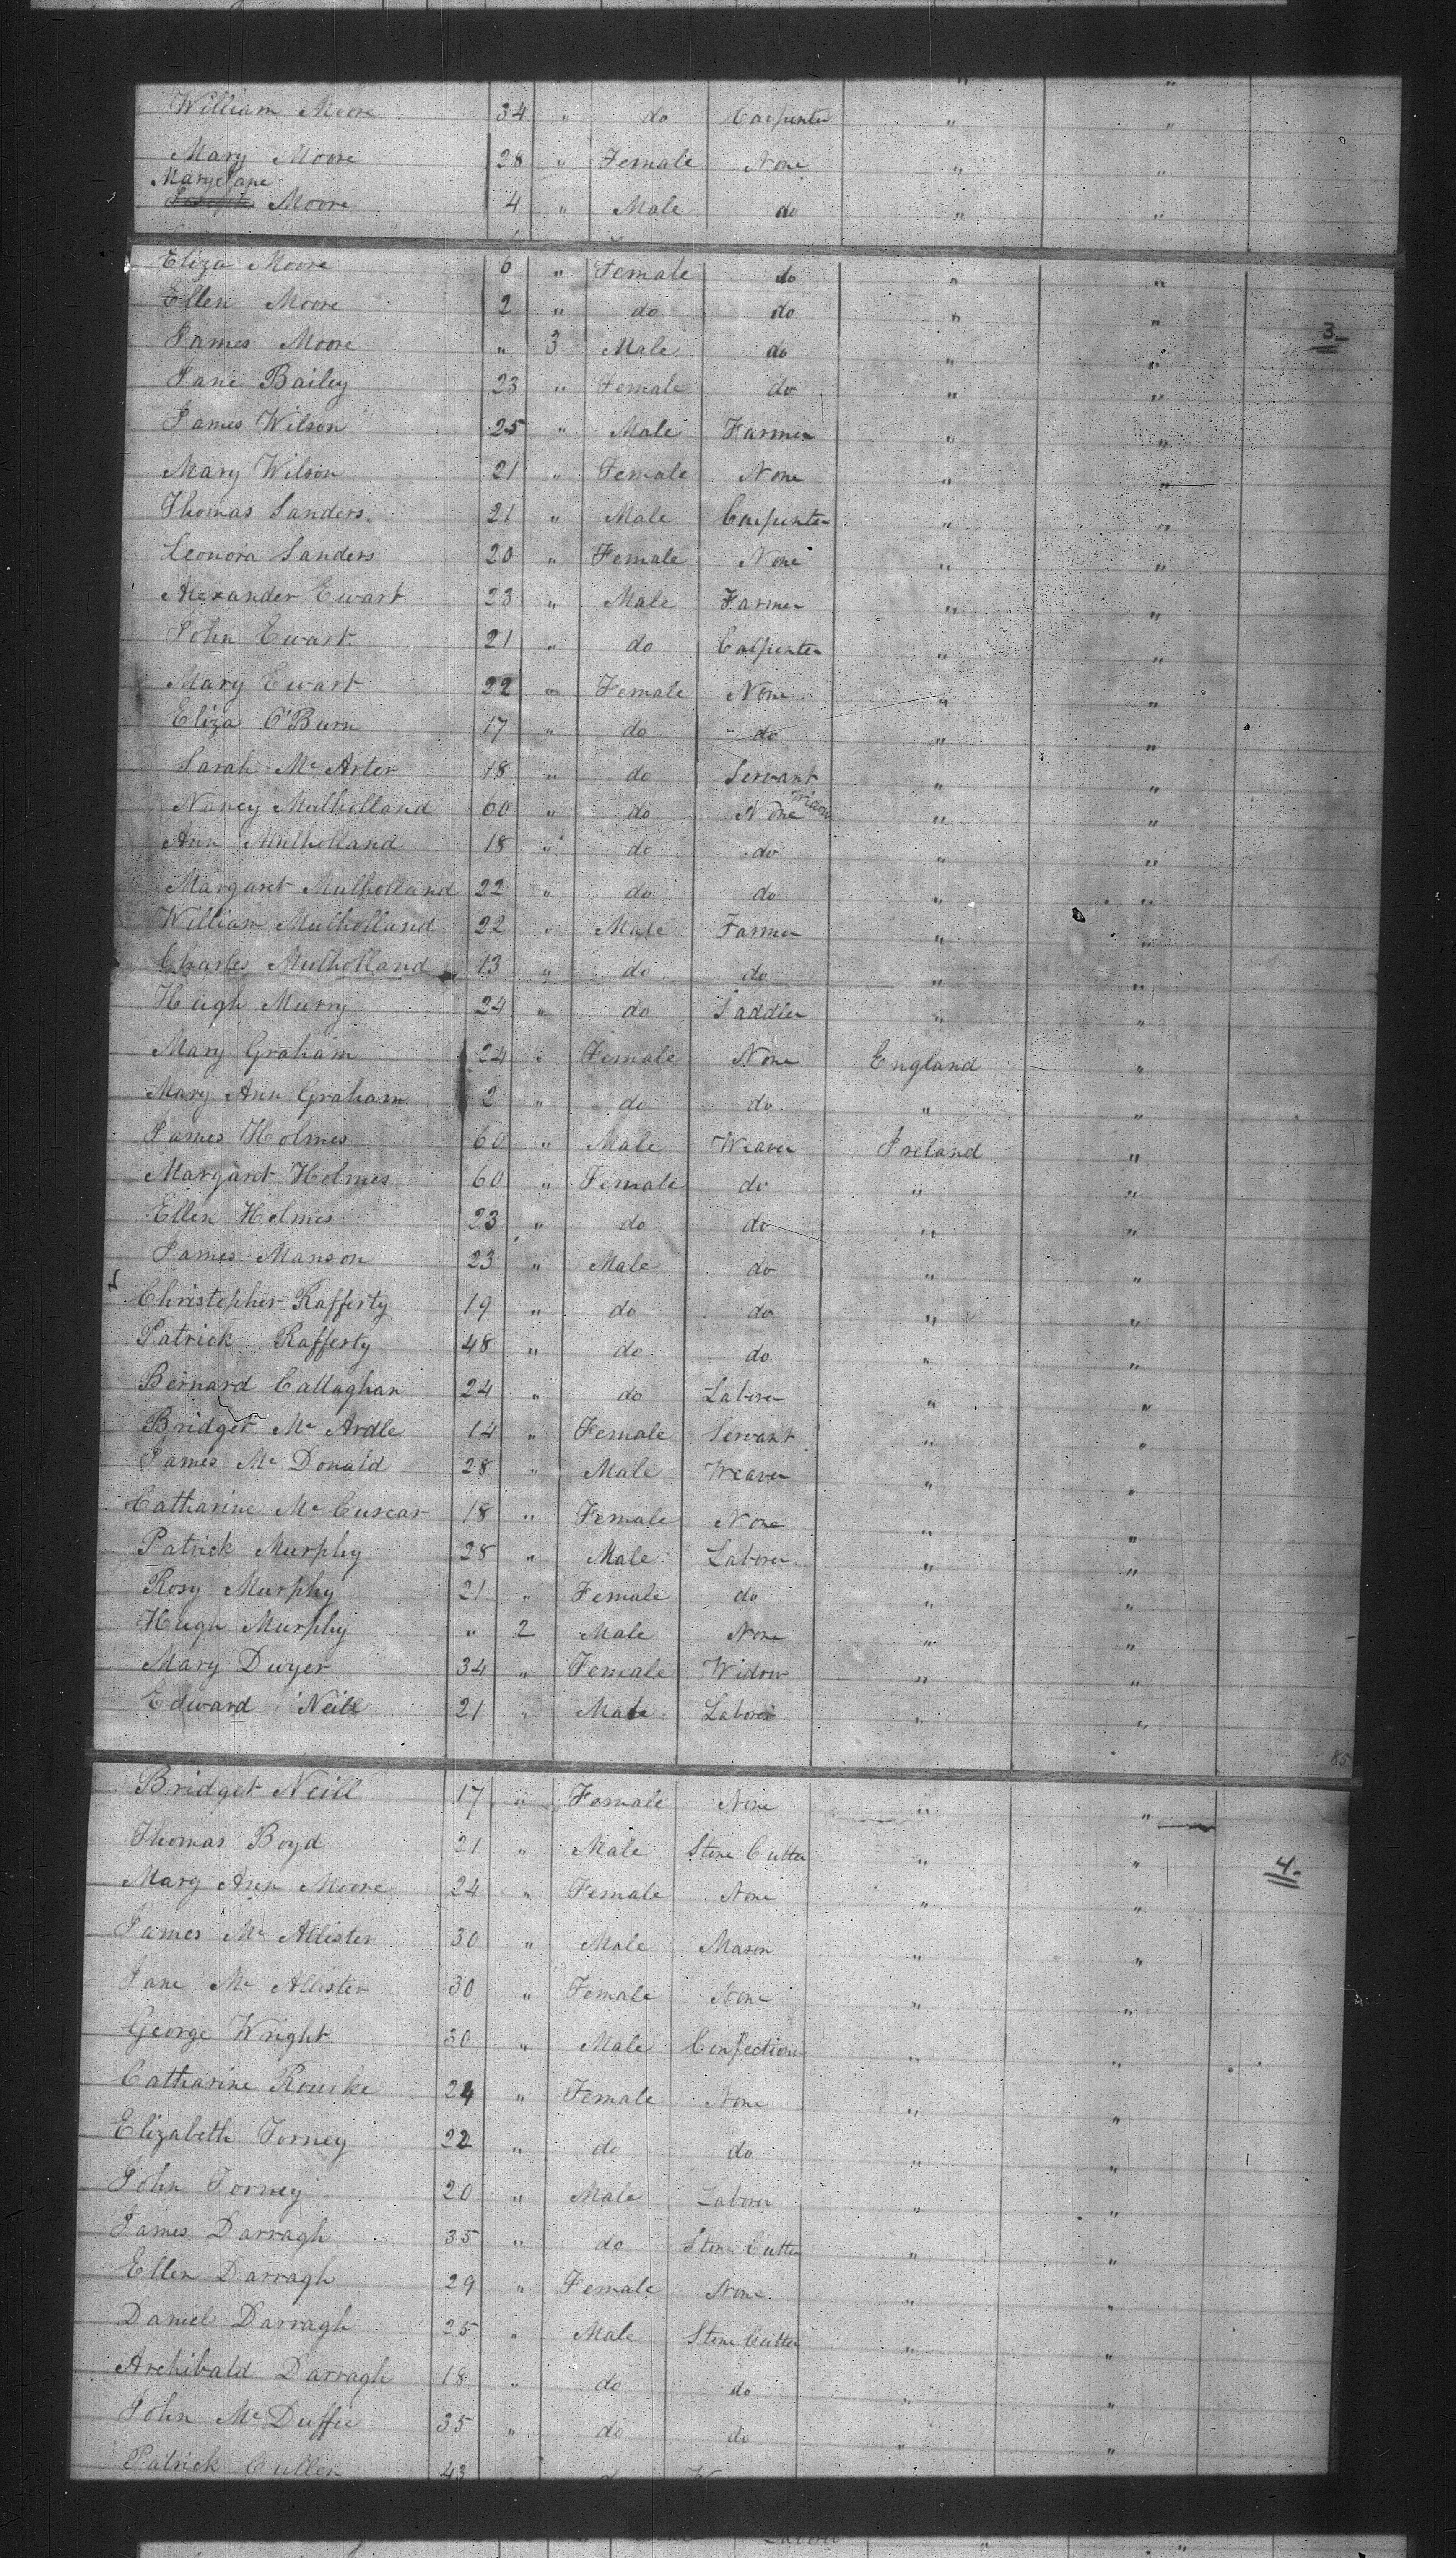 " "
William Moore 34 " do Carpenter " "
Mary Moore 28 " Female None " "
Mary Jane
Joseph Moore 4 " Male do " "
Eliza Moore 6 " Female do " "
Ellen Moore 2 " do do " "
3
James Moore " 3 Male do " "
Jane Bailey 23 " Female do " "
James Wilson 25 " Male Farmer " "
Mary Wilson 21 " Female None " "
Thomas Sanders. 21 " Male Carpenter " "
Leonora Sanders 20 " Female None " "
Alexander Ewart 23 " Male Farmer " "
John Ewart 21 " do Carpenter " "
Mary Ewart 22 " Female None " "
Eliza O'Burn 17 " do do " "
Sarah Mc Arter 18 " do Servant " "
Nancy Mulholland 60 " do None Widow " "
Ann Mulholland 18 " do do " "
Margaret Mulholland 22 " do do " "
William Mulholland 22 " Male Farmer " "
Charles Mulholland 13 " do do " "
Hugh Murry 24 " do Saddler " "
Mary Graham 24 " Female None England "
Mary Ann Graham 2 " do do " "
James Holmes 60 " Male Weaver Ireland "
Margaret Holmes 60 " Female do " "
Ellen Holmes 23 " do do " "
James Manson 23 " Male do " "
Christopher Rafferty 19 " do do " "
Patrick Rafferty 48 " do do " "
Bernard Callaghan 24 " do Laborer " "
Bridget Mc Ardle 14 " Female Servant " "
James Mc Donald 28 " Male Weaver " "
Catharine Mc Cuscar 18 " Female None " "
Patrick Murphy 28 " Male Laborer " "
Rosy Murphy 21 " Female do " "
Hugh Murphy " 2 Male None " "
Mary Dwyer 34 " Female Widow " "
Edward Neill 21 " Male Laborer " "
85
Bridget Neill 17 " Female None " "
Thomas Boyd 21 " Male Stone Cutter " "
4
Mary Ann Moore 24 " Female None " "
James Mc Allister 30 " Male Mason " "
Jane Mc Allister 30 " Female None " "
George Wright 30 " Male Confectioner " "
Catharine Rourke 24 " Female None " "
Elizabeth Torney 22 " do do " "
John Torney 20 " Male Laborer " "
James Darragh 35 " do Stone Cutter " "
Ellen Darragh 29 " Female None " "
Daniel Darragh 25 " Male Stone Cutter " "
Archibald Darragh 18 " do do " "
John Mc Duffie 35 " do do " "
Patrick Cullen 43 do
Laborer " "